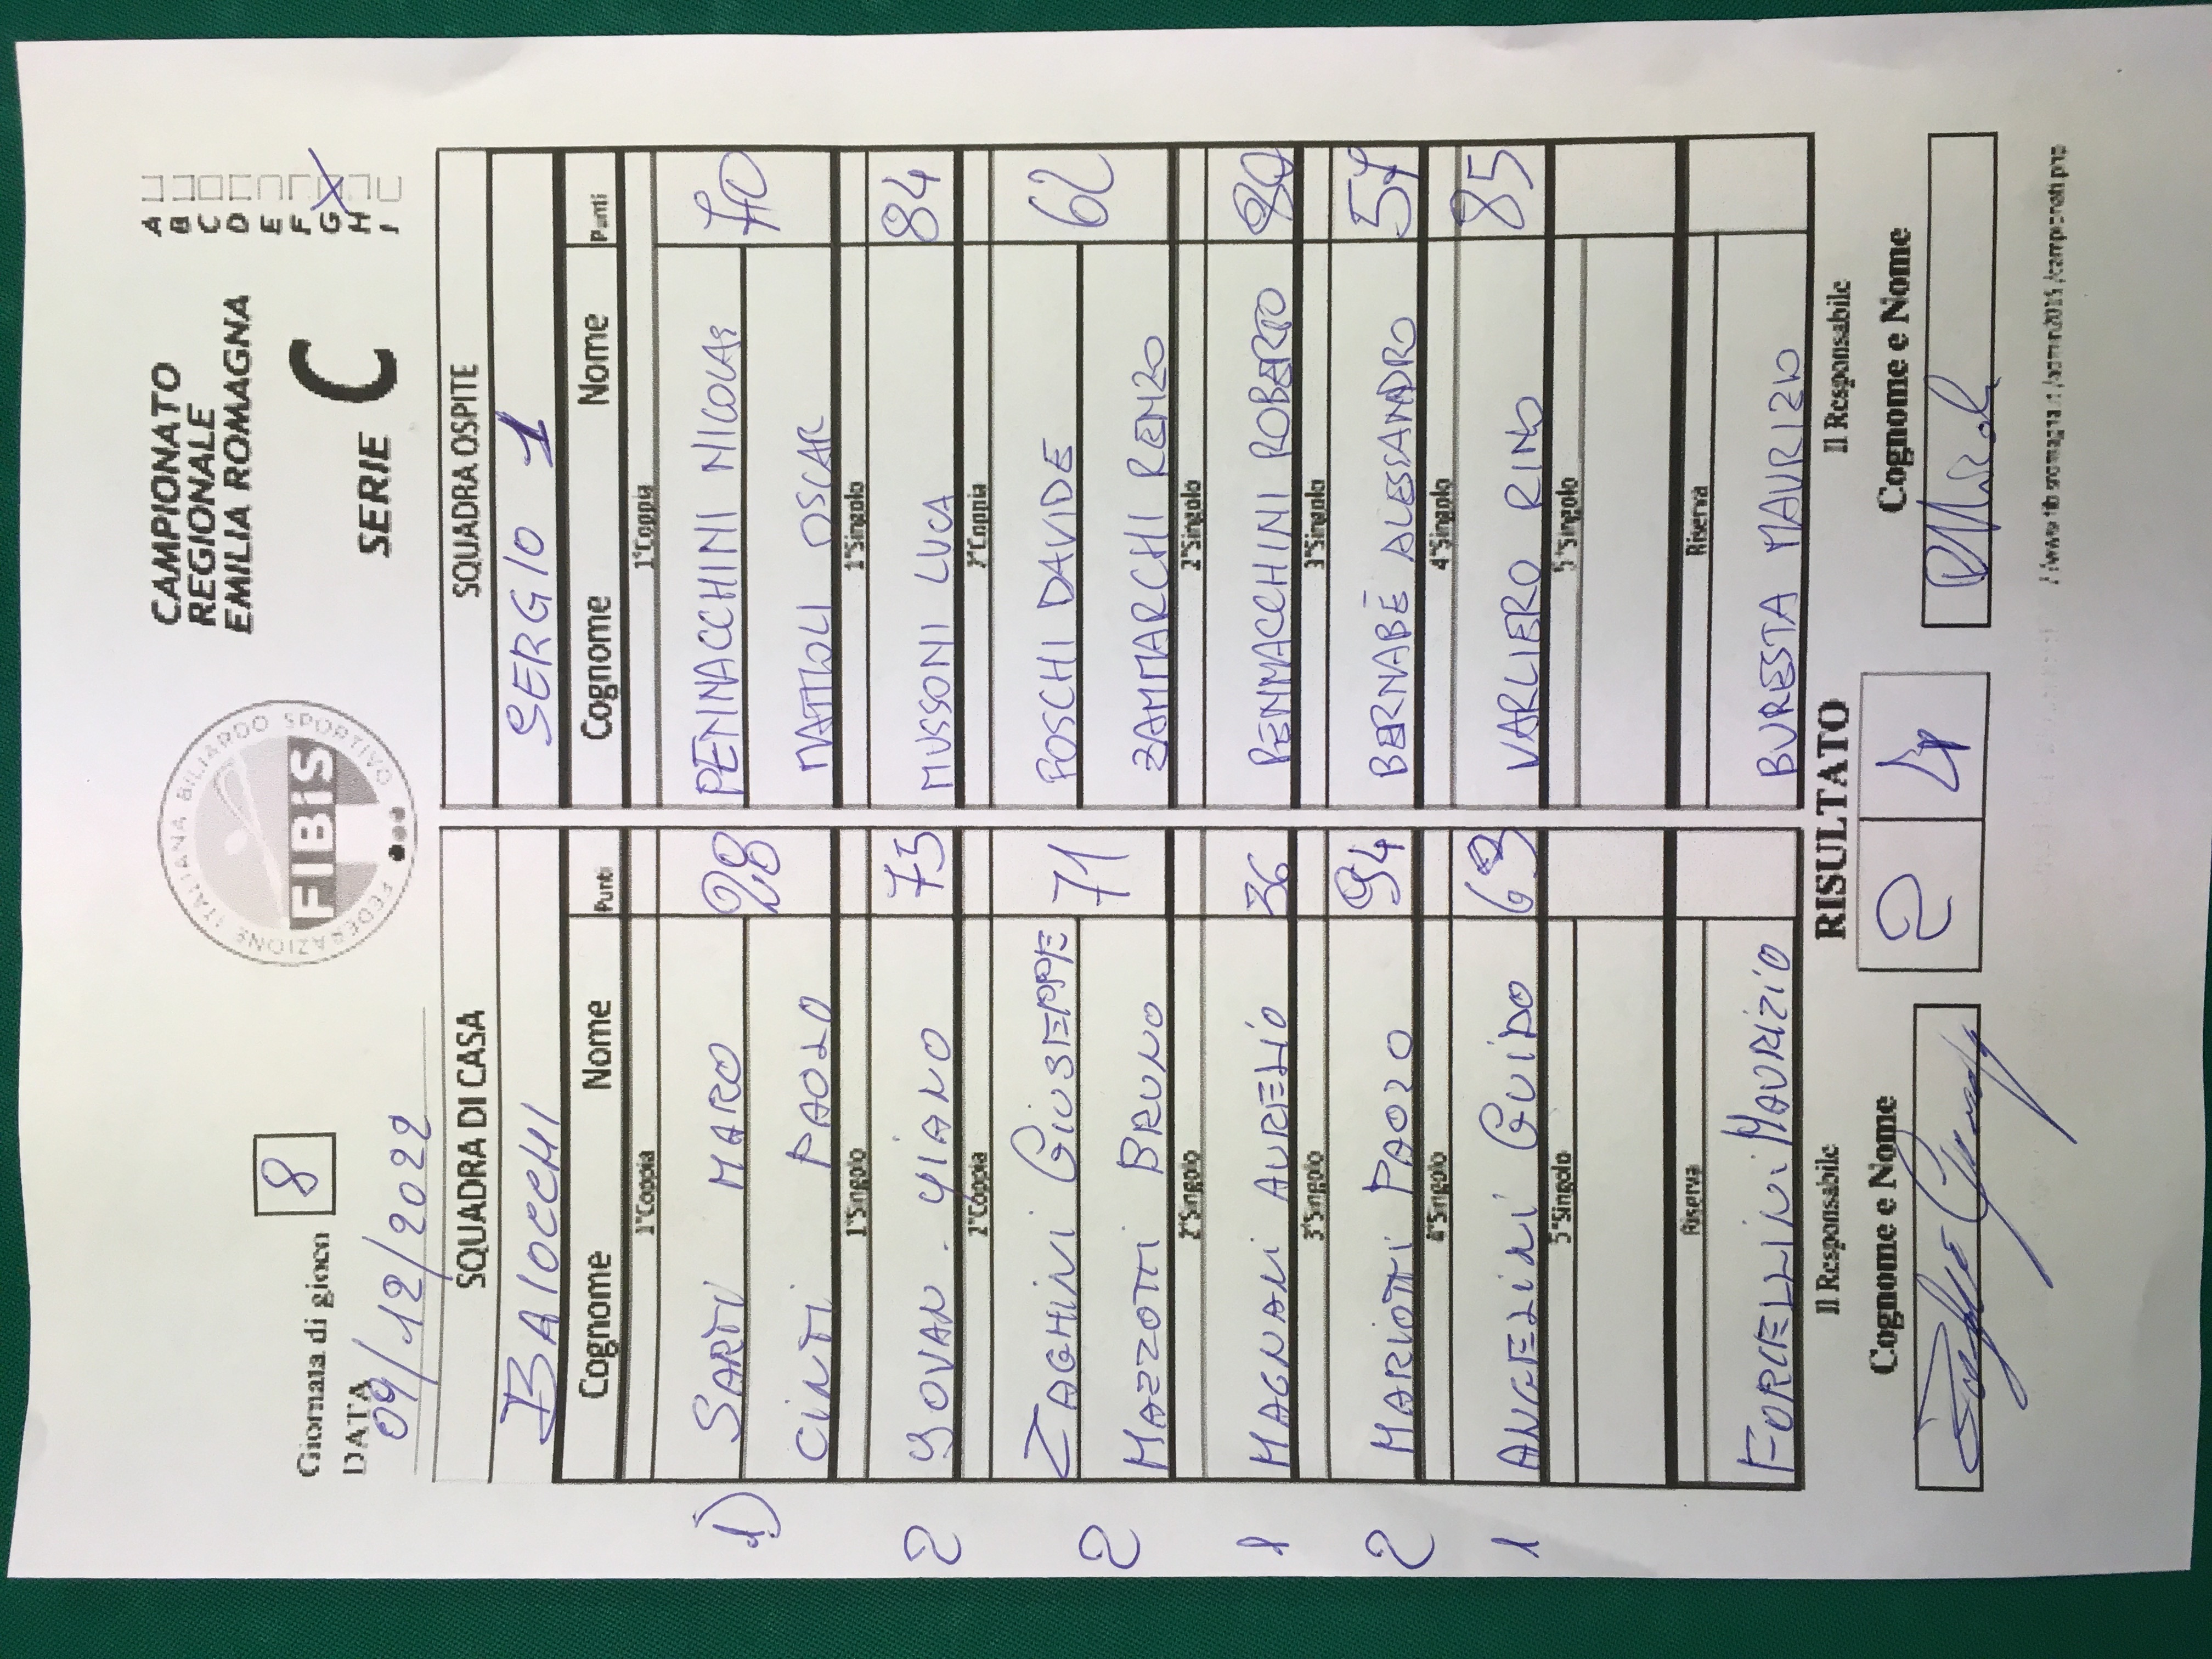 Giornata di gioco 8
DATA 09/12/2022
FEDERAZIONE ITALIANA BILIARDO SPORTIVO
FIBiS
CAMPIONATO
REGIONALE
EMILIA ROMAGNA
SERIE C
A
B
C
D
E
F
G X
H
I
SQUADRA DI CASA SQUADRA OSPITE
BAIOCCHI SERGIO 1
Cognome Nome Punti Cognome Nome Punti
1°Coppia 1°Coppia
1) SARTI MARO 28 PENNACCHINI NICOLAS 70
CINTI PAOLO MATTIOLI OSCAR
1°Singolo 1°Singolo
2 YIANO 75 MUSSONI LUCA 84
2°Coppia 2°Coppia
2 ZAGHINI GIUSEPPE 71 FOSCHI DAVIDE 62
MAZZOTTI BRUNO ZAMMARCHI RENZO
2°Singolo 2°Singolo
1 MAGNANI AURELIO 36 PENNACCHINI ROBERTO
3°Singolo 3°Singolo
2 MARIOTTI PAOLO 94 BERNABÈ ALESSANDRO 57
4°Singolo 4°Singolo
1 ANGELINI GUIDO 63 VARLIERO RINO 85
5°Singolo 5°Singolo
Riserva Riserva
FORCELLINI MAURIZIO BURESTA MAURIZIO
Il Responsabile RISULTATO Il Responsabile
Cognome e Nome 2 4 Cognome e Nome